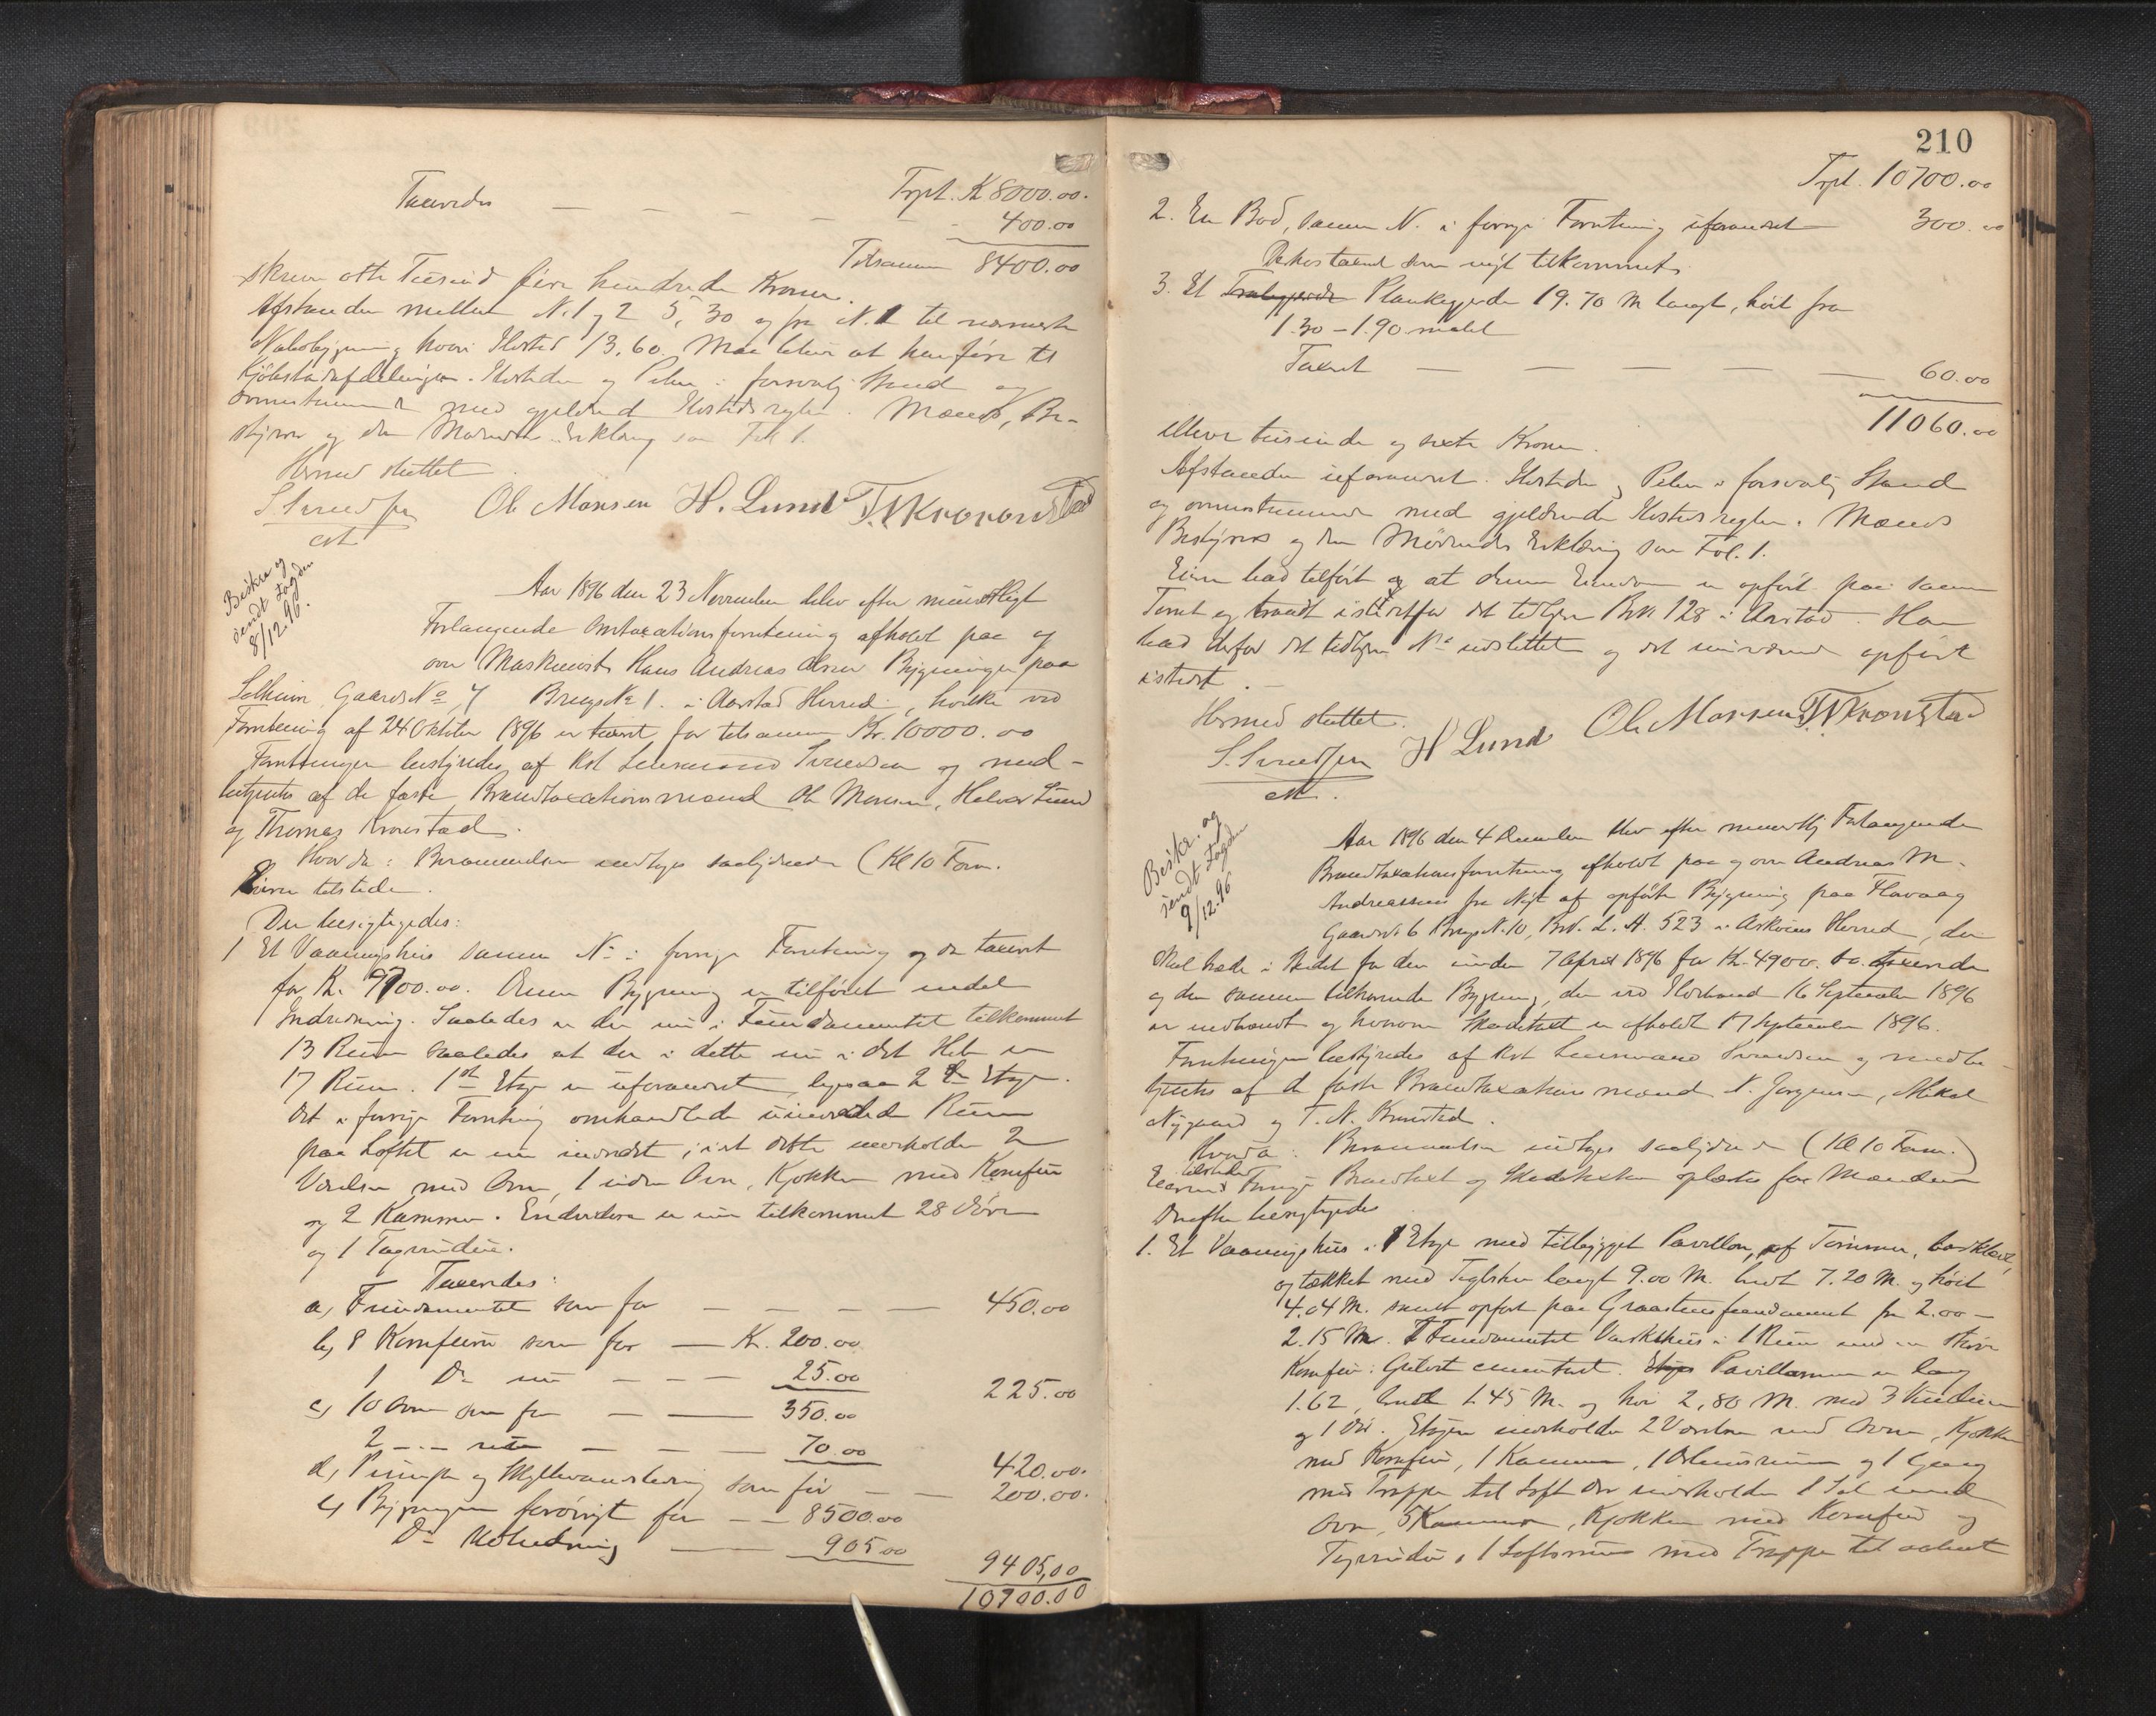 Trpt. K 8000.00.
Taxeredes — — — — — 400.00
Tilsammen 8400.00
skriver otte Tusind fire hundrede Kroner.
Afstanden mellem N. 1 og 2 5,30 og fra N. 1 til nærmeste
Nabobygning hvori Ildsted 13,60. Maa blive at henføre til
Kjøbstadafdelingen. Ildsteder og Piber i forsvarlig Stand og
overensstemmende med gjeldende Ildstedsregler. Mænds, Be-
styrers og den Mødendes Erklæring som Fol 1.
Hermed sluttet
S. Svendsen Ole Monsen H. Lund T. N Kronstad
cst
Beskr. og
sendt Fogden
8/12.96.
Aar 1896 den 23 November blev efter mundtligt
Forlangende Omtaxationsforretning afholdt paa og
over Maskinist Hans Andreas Olsens Bygninger paa
Solheim Gaards No 4 Brugs No 1. i Aarstad Herred, hvilke ved
Forretning af 24 Oktober 1896 er taxeret for tilsammen Kr. 10000.00
Forretningen bestyredes af Kst Lensmand Svendsen og med-
betjentes af de faste Brandtaxationsmænd Ole Monsen, Halvor Lund
og Thomas Kronstad.
Hvorda: Berammelsen indtages saalydende (Kl 10 Form.
Eieren tilstede.
Der besigtigedes:
1 Et Vaaningshus samme No i forrige Forretning og da taxeret
for Kr. 9700.00. Denne Bygning er tilført endel
Indredning. Saaledes er der nu i Fundamentet tilkommet
13 Rum saaledes at der i dette nu i det Hele er
17 Rum. 1ste Etage er uforandret, ligesaa 2den Etage.
Det i forrige Forretning omhandlede uindredede Rum
paa Loftet er nu indredet, idet dette indeholder 2
Værelser med Ovn, 1 uden Ovn, Kjøkken med Komfur
og 2 Kammer. Endvidere er nu tilkommet 28 Døre
og 1 Tagvindue.
Taxeredes:
a, Fundamentet som før — — — — 450.00
b, 8 Komfurer som før — Kr. 200.00
1 Do ny — — — 25.00 225.00
c, 10 Ovne som før — — 350.00
2 — " — nye — — — 70.00 420.00.
d, Pumpe og Skyllevandsledning som før — — 200.00.
e, Bygningen forøvrigt før — — 8500.00
Do Udredning — 905.00 9405,00
10700.00
210
Trpt. 10700.00
2. En Bod, samme N. i forrige Forretning uforandret 300.00
Derhos taxeret som nyt tilkommet
3. Et Plankegjerde 19.70 M langt, høit fra
1.30 – 1.90 malet
Taxeret — — — — — 60.00
11060.00
elleve tusinde og sexti Kroner.
Afstanden uforandret. Ildsteder og Piber i forsvarlig Stand
og overensstemmende med gjeldende Ildstedsregler. Mænds
Bestyrers og den Mødendes Erklæring som Fol. 1.
Eieren bad tilført at denne Eiendom er opført paa samme
Tomt og traadt istedetfor det tidligere BrNo 128 i Aarstad. Han
bad derfor det tidligere No udslettet og det nuværende opført
istedet. —
Hermed sluttet.
S. Svendsen H Lund Ole Monsen T. N Kronstad
cst.
Beskr. og
sendt Fogden
9/12.96
Aar 1896 den 4 December blev efter mundtlig Forlangende
Brandtaxationsforretning afholdt paa og over Andreas M.
Andreassens fra Nyt af opførte Bygning paa Flavaag
Gaards No 6 Brugs N. 10, BrN. L. A. 523 i Askøens Herred, der
skal træde i Stedet for den under 7 April 1896 for Kr. 4900.00. taxerede
og den samme tilhørende Bygning, der ved Ildebrand 16 September 1896
er nedbrændt og hvorom Skadetaxt er afholdt 17 September 1896.
Forretningen bestyredes af Kst Lensmand Svendsen og medbe-
tjentes af de faste Brandtaxationsmænd N. Jørgensen, Mikal
Nygaard og T. N. Kronstad.
Hvorda: Berammelsen indtages saalydende (Kl 10 Form.)
Eieren tilstede. Forrige Brandtaxt og Skadetaxten oplæstes for Mændene
Derefter besigtigedes
1. Et Vaaningshus i 1 Etage med tilbygget Pavillon, af Tømmer, bordklædt,
og tækket med Teglsten langt 9.00 M. bredt 7.20 M. og høit
4.04 M. samt opført paa Graastensfundament fra 2.00 –
2.15 M. I Fundamentet Vaskehus i 1 Rum med en større
Komfur: Gulvet cementeret. Pavillonen er lang
1.62, bred 1.45 M. og høi 2,80 M. med 3 Vinduer
og 1 Dør. Etagen indeholder 2 Værelser med Ovne, Kjøkken
med Komfur, 1 Kammer, 1 og 1 Gang
med Trappe til Loft der indeholder 1 Sal med
Ovn, 5 Kammer, Kjøkken med Komfur og
Tagvindue, 1 Loftsrum med Trappe til